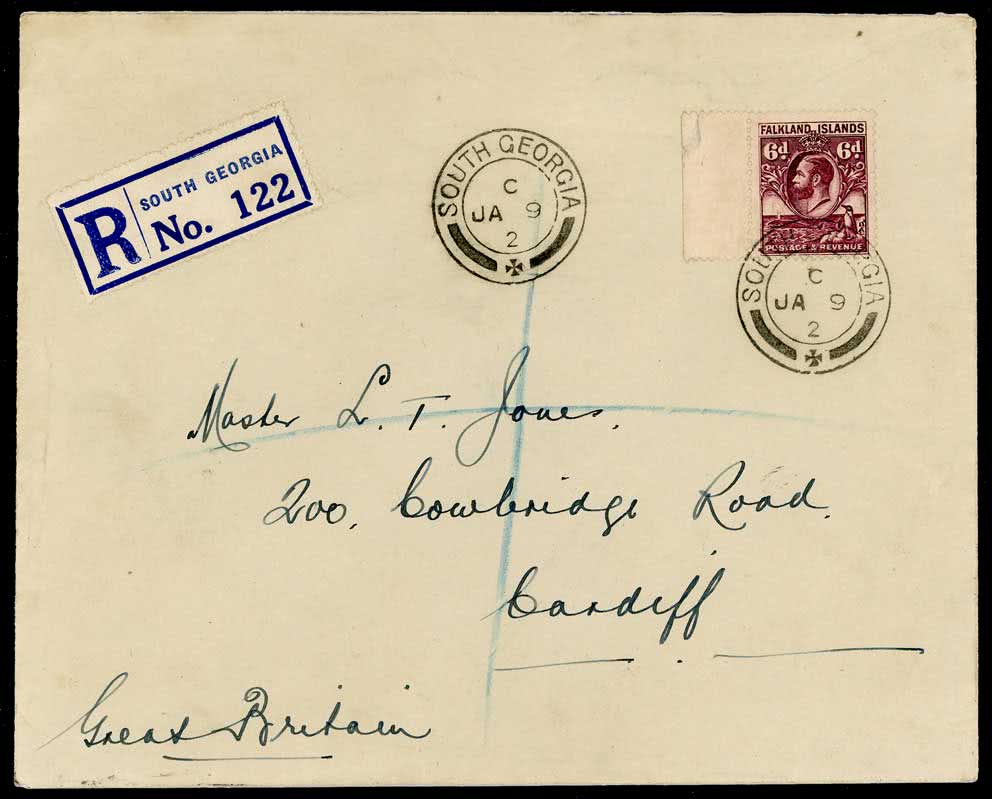 R SOUTH GEORGIA
No. 122
SOUTH GEORGIA
C
JA 9
2
FALKLAND ISLANDS
6d. 6d.
POSTAGE & REVENUE
SOUTH GEORGIA
C
JA 9
2
Master L. T. Jones,
200, Cowbridge Road.
Cardiff
Great Britain